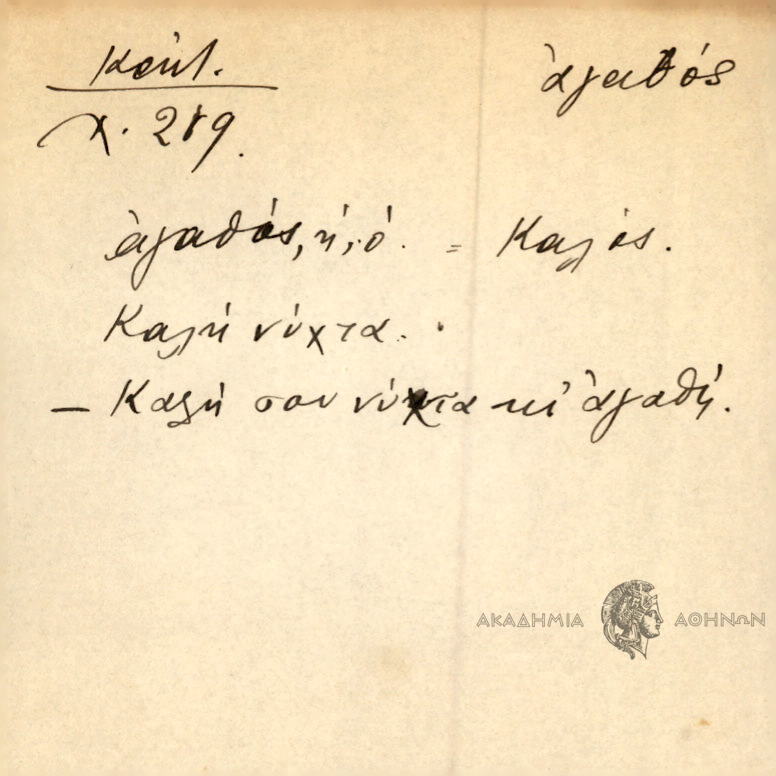 Κρήτ.
ἀγαθός
χ. 289.
ἀγαθός, ή, ό. = Καλός.
Καλή νύχτα.
— Καλή σου νύχτα κι' ἀγαθή.
ΑΚΑΔΗΜΙΑ ΑΘΗΝΩΝ